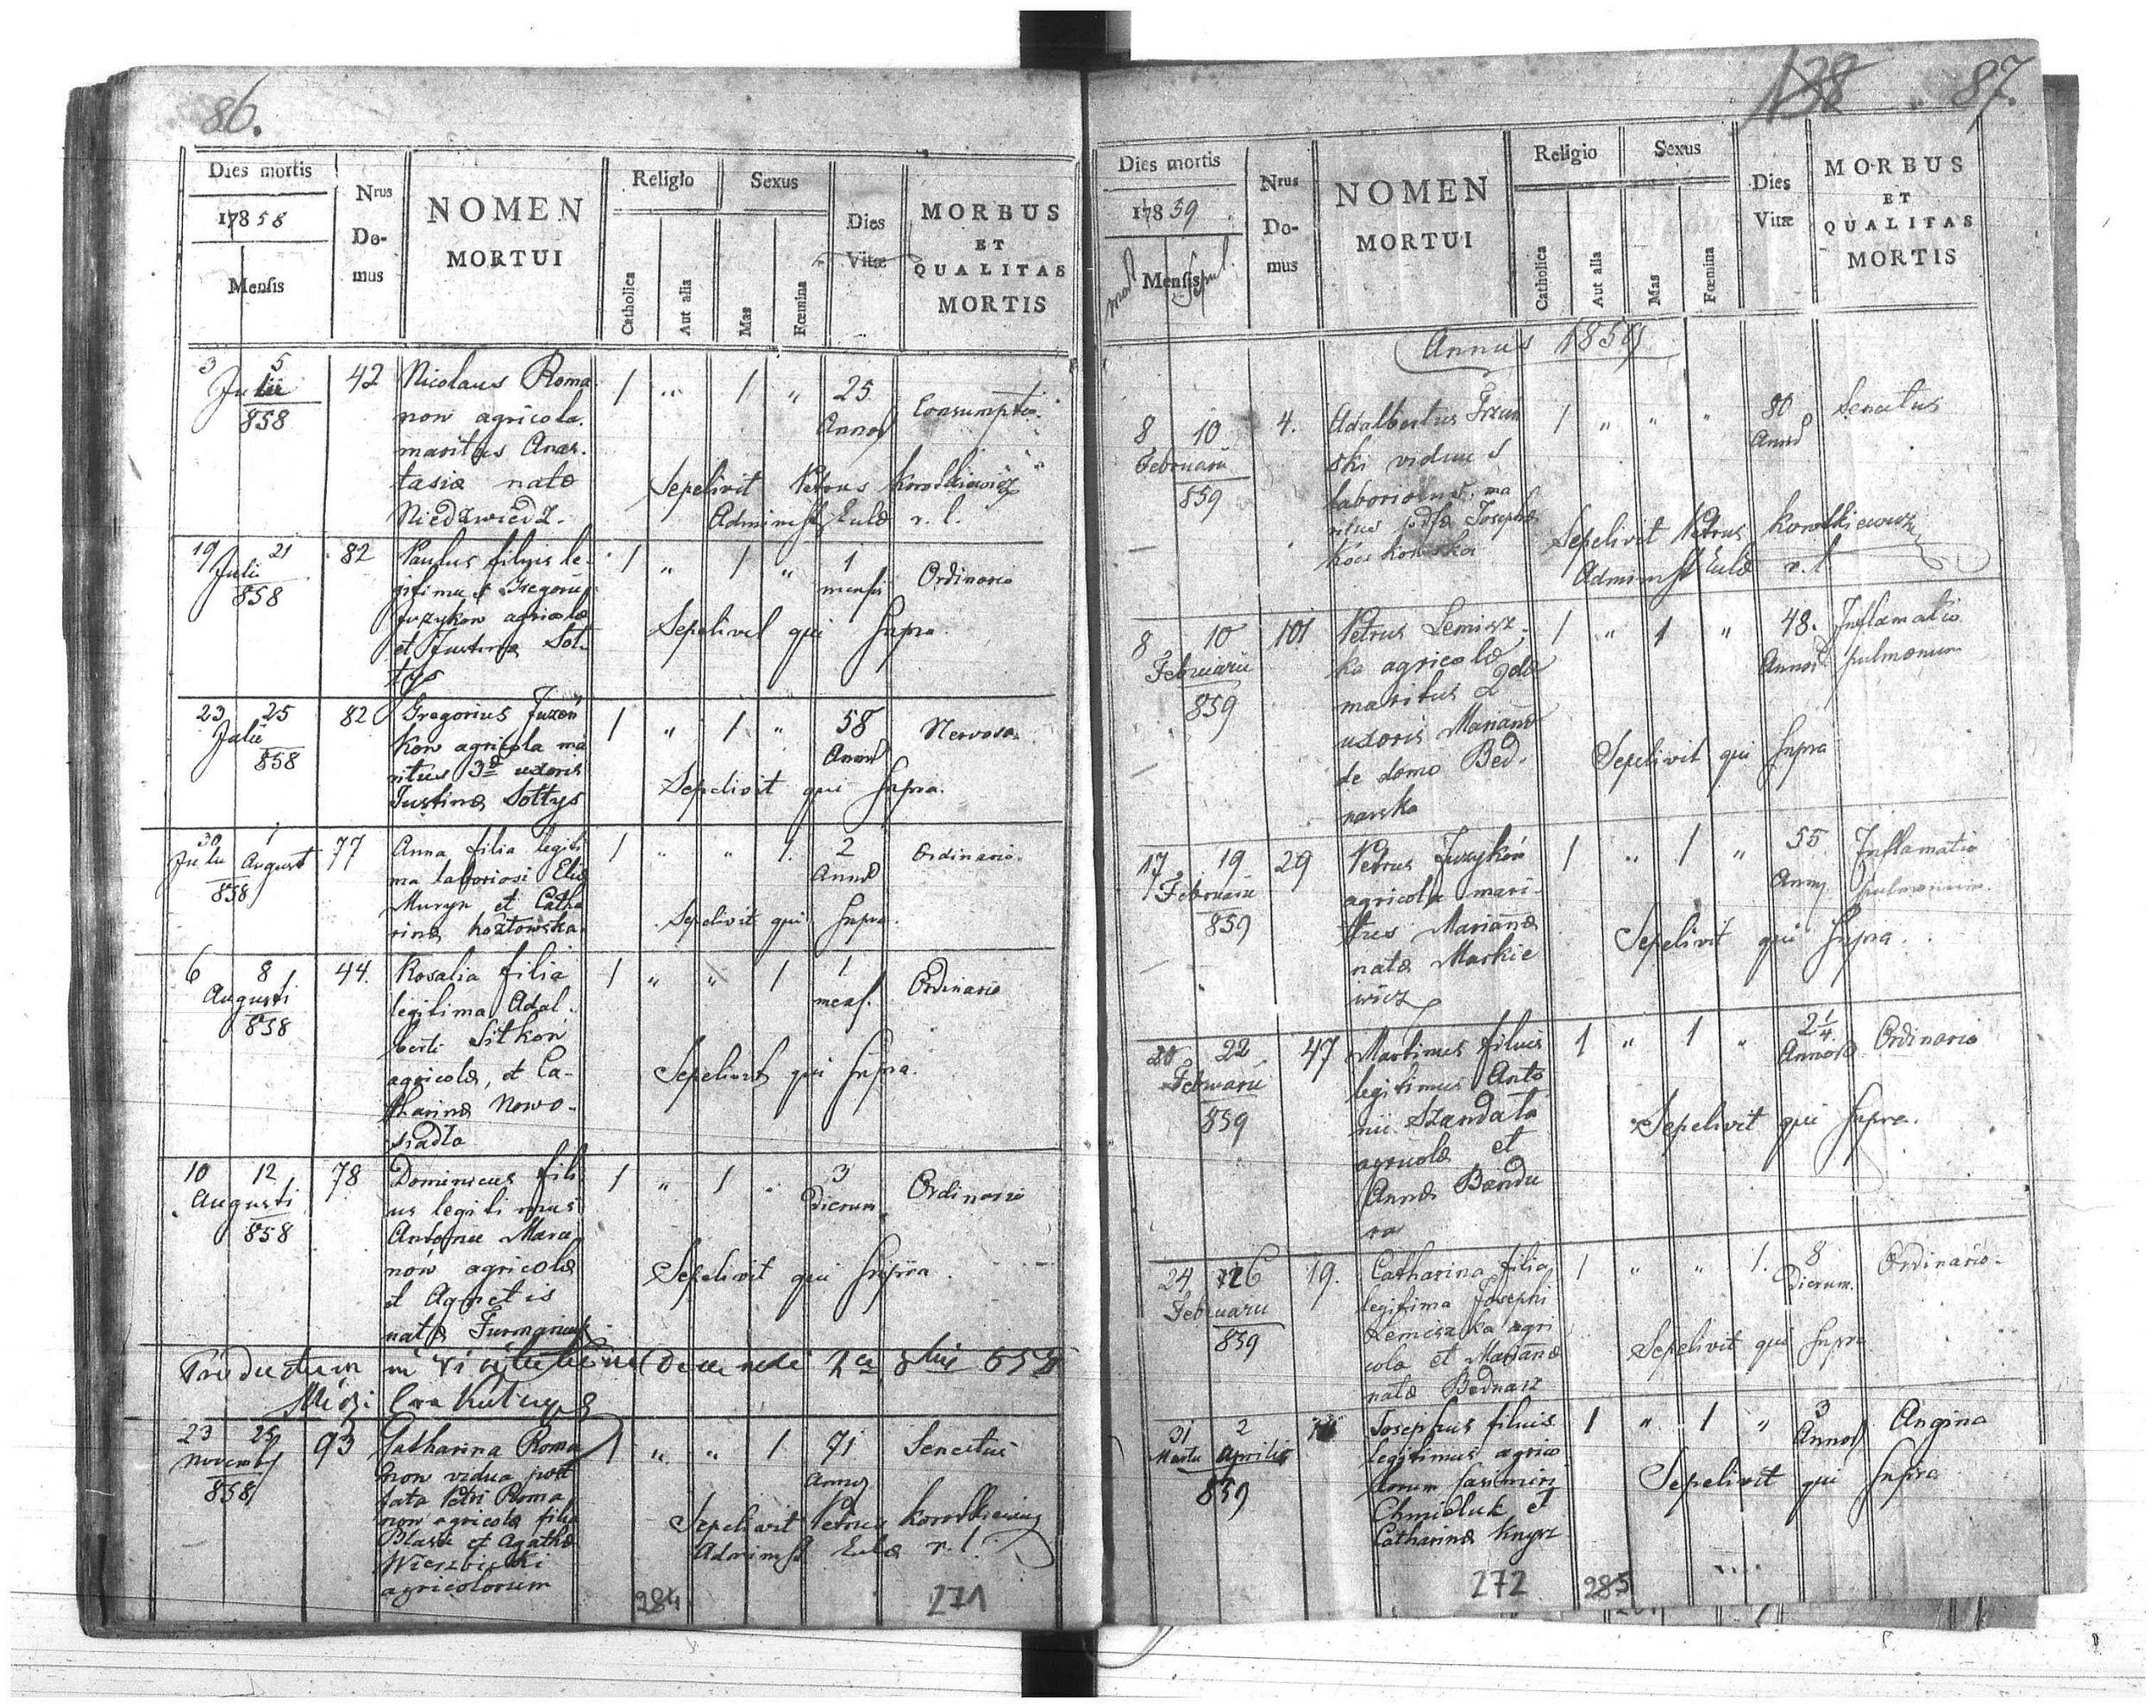 86.
Dies mortis
1785 8
Mensis
Nrus
Do-
mus
NOMEN
MORTUI
Religio
Catholica
Aut alia
Sexus
Mas
Fœmina
Dies
Vitæ
MORBUS
ET
QUALITAS
MORTIS
3 5
Julii
858
42
Nicolaus Roma
now agricola
maritus Anas-
tasiæ natæ
Niedzwiedz.
1 " 1 "
25
Annor
Consumptio
Sepelivit Petrus Korostkiewicz
Administ Eulæ r. l.
19 21
Julii
858
82
Paulus filius le-
gitimus Gregorii
Juzykow agricolæ
et Justinæ Sol-
tys
1 " 1 "
1
mensis
Ordinario
Sepelivit qui supra
23 25
Julii
858
82
Gregorius Juzy
kow agricola ma
ritus 3æ uxoris
Justinæ Sołtys
1 " 1 "
58
Annor
Nervosa
Sepelivit qui supra.
30 1
Julii August
858
77
Anna filia legiti
ma laboriosi Eliæ
Muryn et Catha
rinæ Kozłowska
1 " " 1.
2
Annor
Ordinario.
Sepelivit qui supra.
6 8
Augusti
858
44.
Rosalia filia
legitima Adal-
berti Sitkow
agricolæ, et Ca-
tharinæ Nowo-
siadła
1 " " 1
1
mens.
Ordinario
Sepelivit qui supra.
10 12
Augusti
858
78
Dominicus fili
us legitimus
Antonii Maru
now agricolæ
et Agnetis
natæ Furmaniuk
1 " 1
3
Dierum
Ordinario
Sepelivit qui supra.
Productum in
23 25
Novemb
858
93
Catharina Roma
now vidua post
fata Petri Roma
now agricolæ filia
Blasii et Agathæ
Wierzbicki
agricolorum
1 " " 1
71
Annor
Senectus
Sepelivit Petrus Korostkiewicz
Administ Eulæ r. l.
284
271
138 87.
Dies mortis
178 59
mort Mensis sepul.
Nrus
Do-
mus
NOMEN
MORTUI
Religio
Catholica
Aut alia
Sexus
Mas
Fœmina
Dies
Vitæ
MORBUS
ET
QUALITAS
MORTIS
Annus 1859
8 10
Februarii
859
4.
Adalbertus
ski viduus
laboriosus, ma
ritus Josephæ
1 " " "
80
Annor
Senectus
Sepelivit Petrus Korostkiewicz
Administ Eulæ r. l
8 10
Februarii
859
101
Petrus Lemisz-
ka agricola
maritus 2dæ
uxoris Mariannæ
de domo Bed-
narska
1 " 1 "
48.
Annor
Inflamatio
pulmonum
Sepelivit qui supra
17 19
Februarii
859
29
Petrus Juzykow
agricola mari-
tus Mariannæ
natæ Markie
wicz
1 " 1 "
55
Annor
Inflamatio
pulmonum.
Sepelivit qui supra.
20 22
Februarii
859
47
Martinus filius
legitimus Anto
nii Szandała
agricolæ et
Annæ Bandu
ra
1 " 1 "
2 1/4
Annor
Ordinario
Sepelivit qui supra.
24 26
Februarii
859
19.
Catharina filia
legitima Josephi
Lemiszka agri
cola et Mariannæ
natæ Bednarz
1 " " 1.
8
Dierum.
Ordinario.
Sepelivit qui supra
31 2
Martii Aprilis
859
Josephus filius
legitimus agrico
lorum Casimiri
Chmieluk et
Catharinæ Knysz
1 " 1 "
3
Annor
Angina
Sepelivit qui supra
272
285